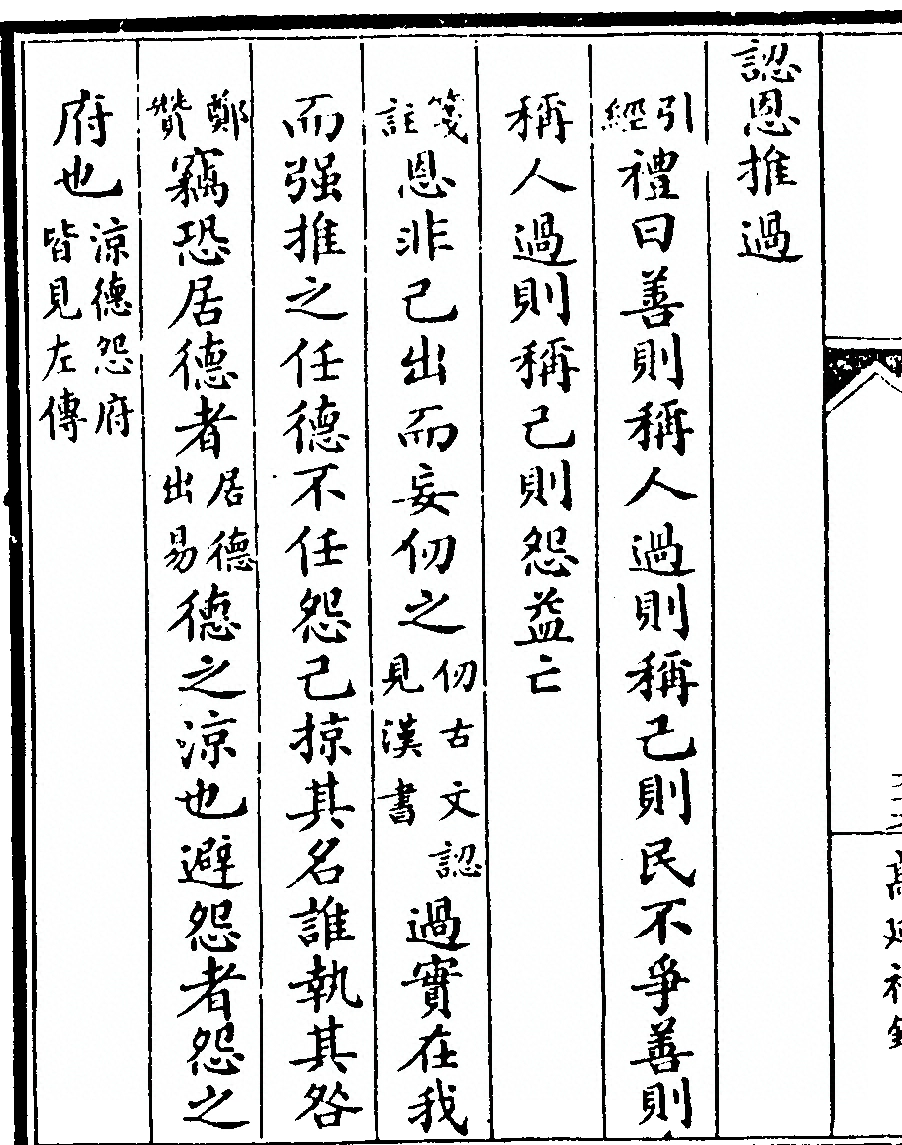 認恩推過
引經禮曰善則稱人過則稱己則民不爭善則
稱人過則稱己則怨益亡
箋註恩非己出而妄仞之仞古文認見漢書過實在我
而强推之任德不任怨己掠其名誰執其咎
鄭贊竊恐居德者居德出易德之涼也避怨者怨之
府也涼德怨府皆見左傳